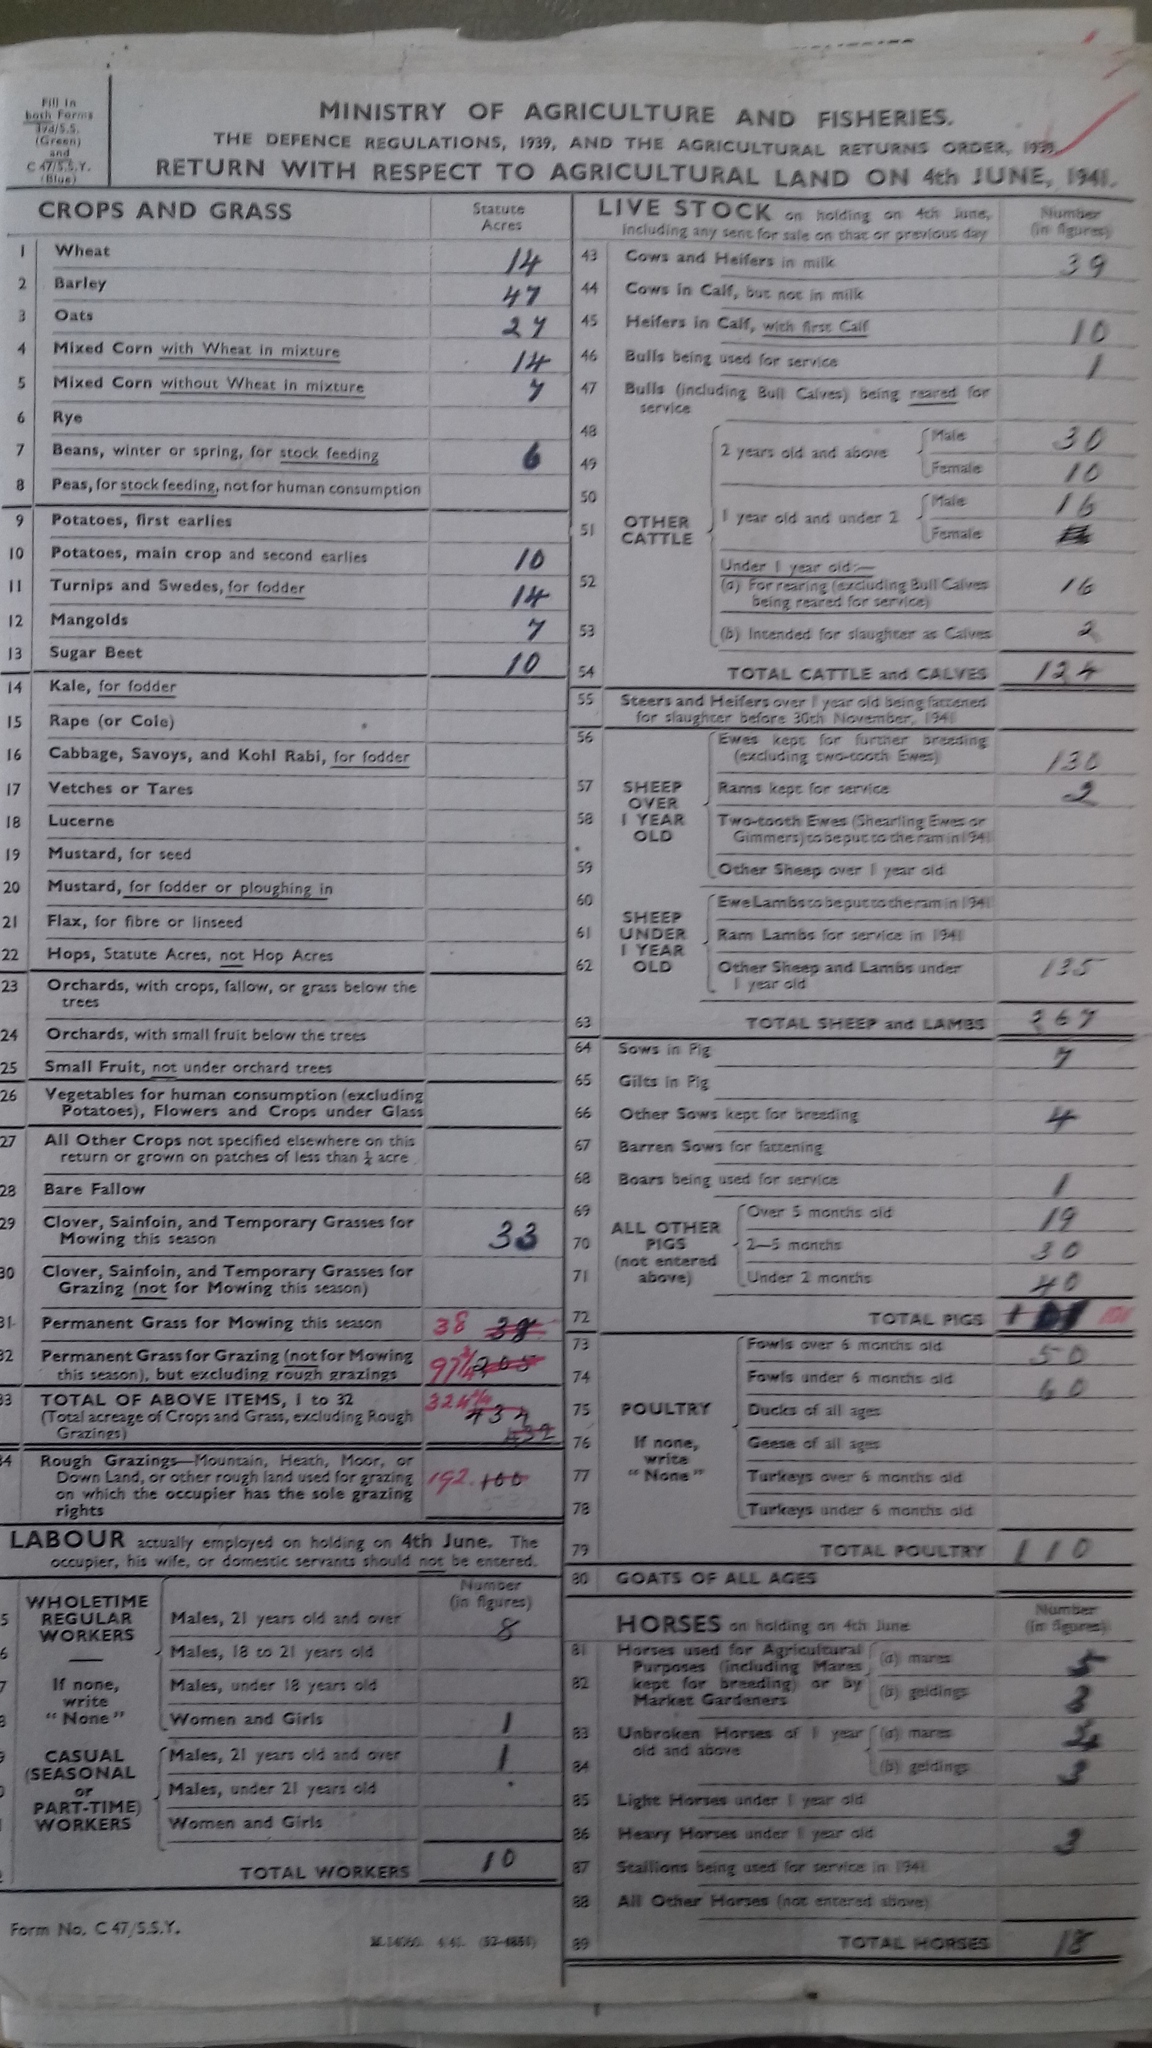 Fill in
both Forms
(Green)
and
C 47/S.S.Y.
(Blue)
MINISTRY OF AGRICULTURE AND FISHERIES.
THE DEFENCE REGULATIONS, 1939, AND THE AGRICULTURAL RETURNS ORDER, 1939.
RETURN WITH RESPECT TO AGRICULTURAL LAND ON 4th JUNE, 1941.
CROPS AND GRASS Statute Acres
1 Wheat 14
2 Barley 47
3 Oats 27
4 Mixed Corn with Wheat in mixture 14
5 Mixed Corn without Wheat in mixture 7
6 Rye
7 Beans, winter or spring, for stock feeding 6
8 Peas, for stock feeding, not for human consumption
9 Potatoes, first earlies
10 Potatoes, main crop and second earlies 10
11 Turnips and Swedes, for fodder 14
12 Mangolds 7
13 Sugar Beet 10
14 Kale, for fodder
15 Rape (or Cole)
16 Cabbage, Savoys, and Kohl Rabi, for fodder
17 Vetches or Tares
18 Lucerne
19 Mustard, for seed
20 Mustard, for fodder or ploughing in
21 Flax, for fibre or linseed
22 Hops, Statute Acres, not Hop Acres
23 Orchards, with crops, fallow, or grass below the
trees
24 Orchards, with small fruit below the trees
25 Small Fruit, not under orchard trees
26 Vegetables for human consumption (excluding
Potatoes), Flowers and Crops under Glass
27 All Other Crops not specified elsewhere on this
return or grown on patches of less than ¼ acre
28 Bare Fallow
29 Clover, Sainfoin, and Temporary Grasses for
Mowing this season 33
30 Clover, Sainfoin, and Temporary Grasses for
Grazing (not for Mowing this season)
31 Permanent Grass for Mowing this season 38 38
32 Permanent Grass for Grazing (not for Mowing
this season), but excluding rough grazings 97¾ 205
33 TOTAL OF ABOVE ITEMS, 1 to 32 324¾
(Total acreage of Crops and Grass, excluding Rough 434
Grazings) 432
34 Rough Grazings—Mountain, Heath, Moor, or
Down Land, or other rough land used for grazing 192. 100
on which the occupier has the sole grazing
rights
LABOUR actually employed on holding on 4th June. The
occupier, his wife, or domestic servants should not be entered.
Number
(in figures)
WHOLETIME REGULAR WORKERS
If none, write "None"
Males, 21 years old and over 8
Males, 18 to 21 years old
Males, under 18 years old
Women and Girls 1
CASUAL (SEASONAL or PART-TIME) WORKERS
Males, 21 years old and over 1
Males, under 21 years old
Women and Girls
TOTAL WORKERS 10
Form No. C 47/S.S.Y.
M.14060. 4/41. (52-4851)
LIVE STOCK on holding on 4th June, Number
including any sent for sale on that or previous day (in figures)
43 Cows and Heifers in milk 39
44 Cows in Calf, but not in milk
45 Heifers in Calf, with first Calf 10
46 Bulls being used for service 1
47 Bulls (including Bull Calves) being reared for
service
OTHER CATTLE
48 2 years old and above Male 30
49 Female 10
50 1 year old and under 2 Male 16
51 Female
Under 1 year old:—
52 (a) For rearing (excluding Bull Calves 16
being reared for service)
53 (b) Intended for slaughter as Calves 2
54 TOTAL CATTLE and CALVES 124
55 Steers and Heifers over 1 year old being fattened
for slaughter before 30th November, 1941
SHEEP OVER 1 YEAR OLD
56 Ewes kept for further breeding
(excluding two-tooth Ewes) 130
57 Rams kept for service 2
58 Two-tooth Ewes (Shearling Ewes or
Gimmers) to be put to the ram in 1941
59 Other Sheep over 1 year old
SHEEP UNDER 1 YEAR OLD
60 Ewe Lambs to be put to the ram in 1941
61 Ram Lambs for service in 1941
62 Other Sheep and Lambs under 135
1 year old
63 TOTAL SHEEP and LAMBS 267
64 Sows in Pig 7
65 Gilts in Pig
66 Other Sows kept for breeding 4
67 Barren Sows for fattening
68 Boars being used for service 1
ALL OTHER PIGS (not entered above)
69 Over 5 months old 19
70 2—5 months 30
71 Under 2 months 40
72 TOTAL PIGS 101
POULTRY
If none, write "None"
73 Fowls over 6 months old 50
74 Fowls under 6 months old 60
75 Ducks of all ages
76 Geese of all ages
77 Turkeys over 6 months old
78 Turkeys under 6 months old
79 TOTAL POULTRY 110
80 GOATS OF ALL AGES
HORSES on holding on 4th June Number
(in figures)
81 Horses used for Agricultural (a) mares 5
Purposes (including Mares
82 kept for breeding) or by (b) geldings 3
Market Gardeners
83 Unbroken Horses of 1 year (a) mares
old and above
84 (b) geldings 3
85 Light Horses under 1 year old
86 Heavy Horses under 1 year old 3
87 Stallions being used for service in 1941
88 All Other Horses (not entered above)
89 TOTAL HORSES 18